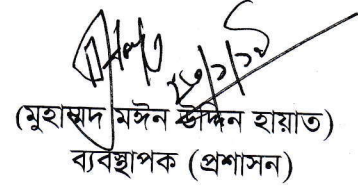 ২৮/১/১৯
(মুহাম্মদ মঈন উদ্দিন হায়াত)
ব্যবস্থাপক (প্রশাসন)